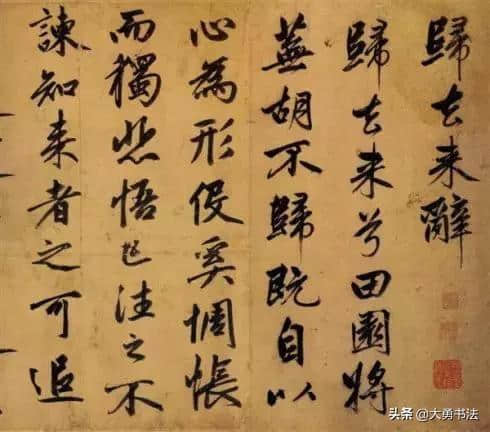 歸去来辭
歸去来兮田園將
蕪胡不歸既自以
心為形役奚惆悵
而獨悲悟已往之不
諫知来者之可追
头条 @大勇书法